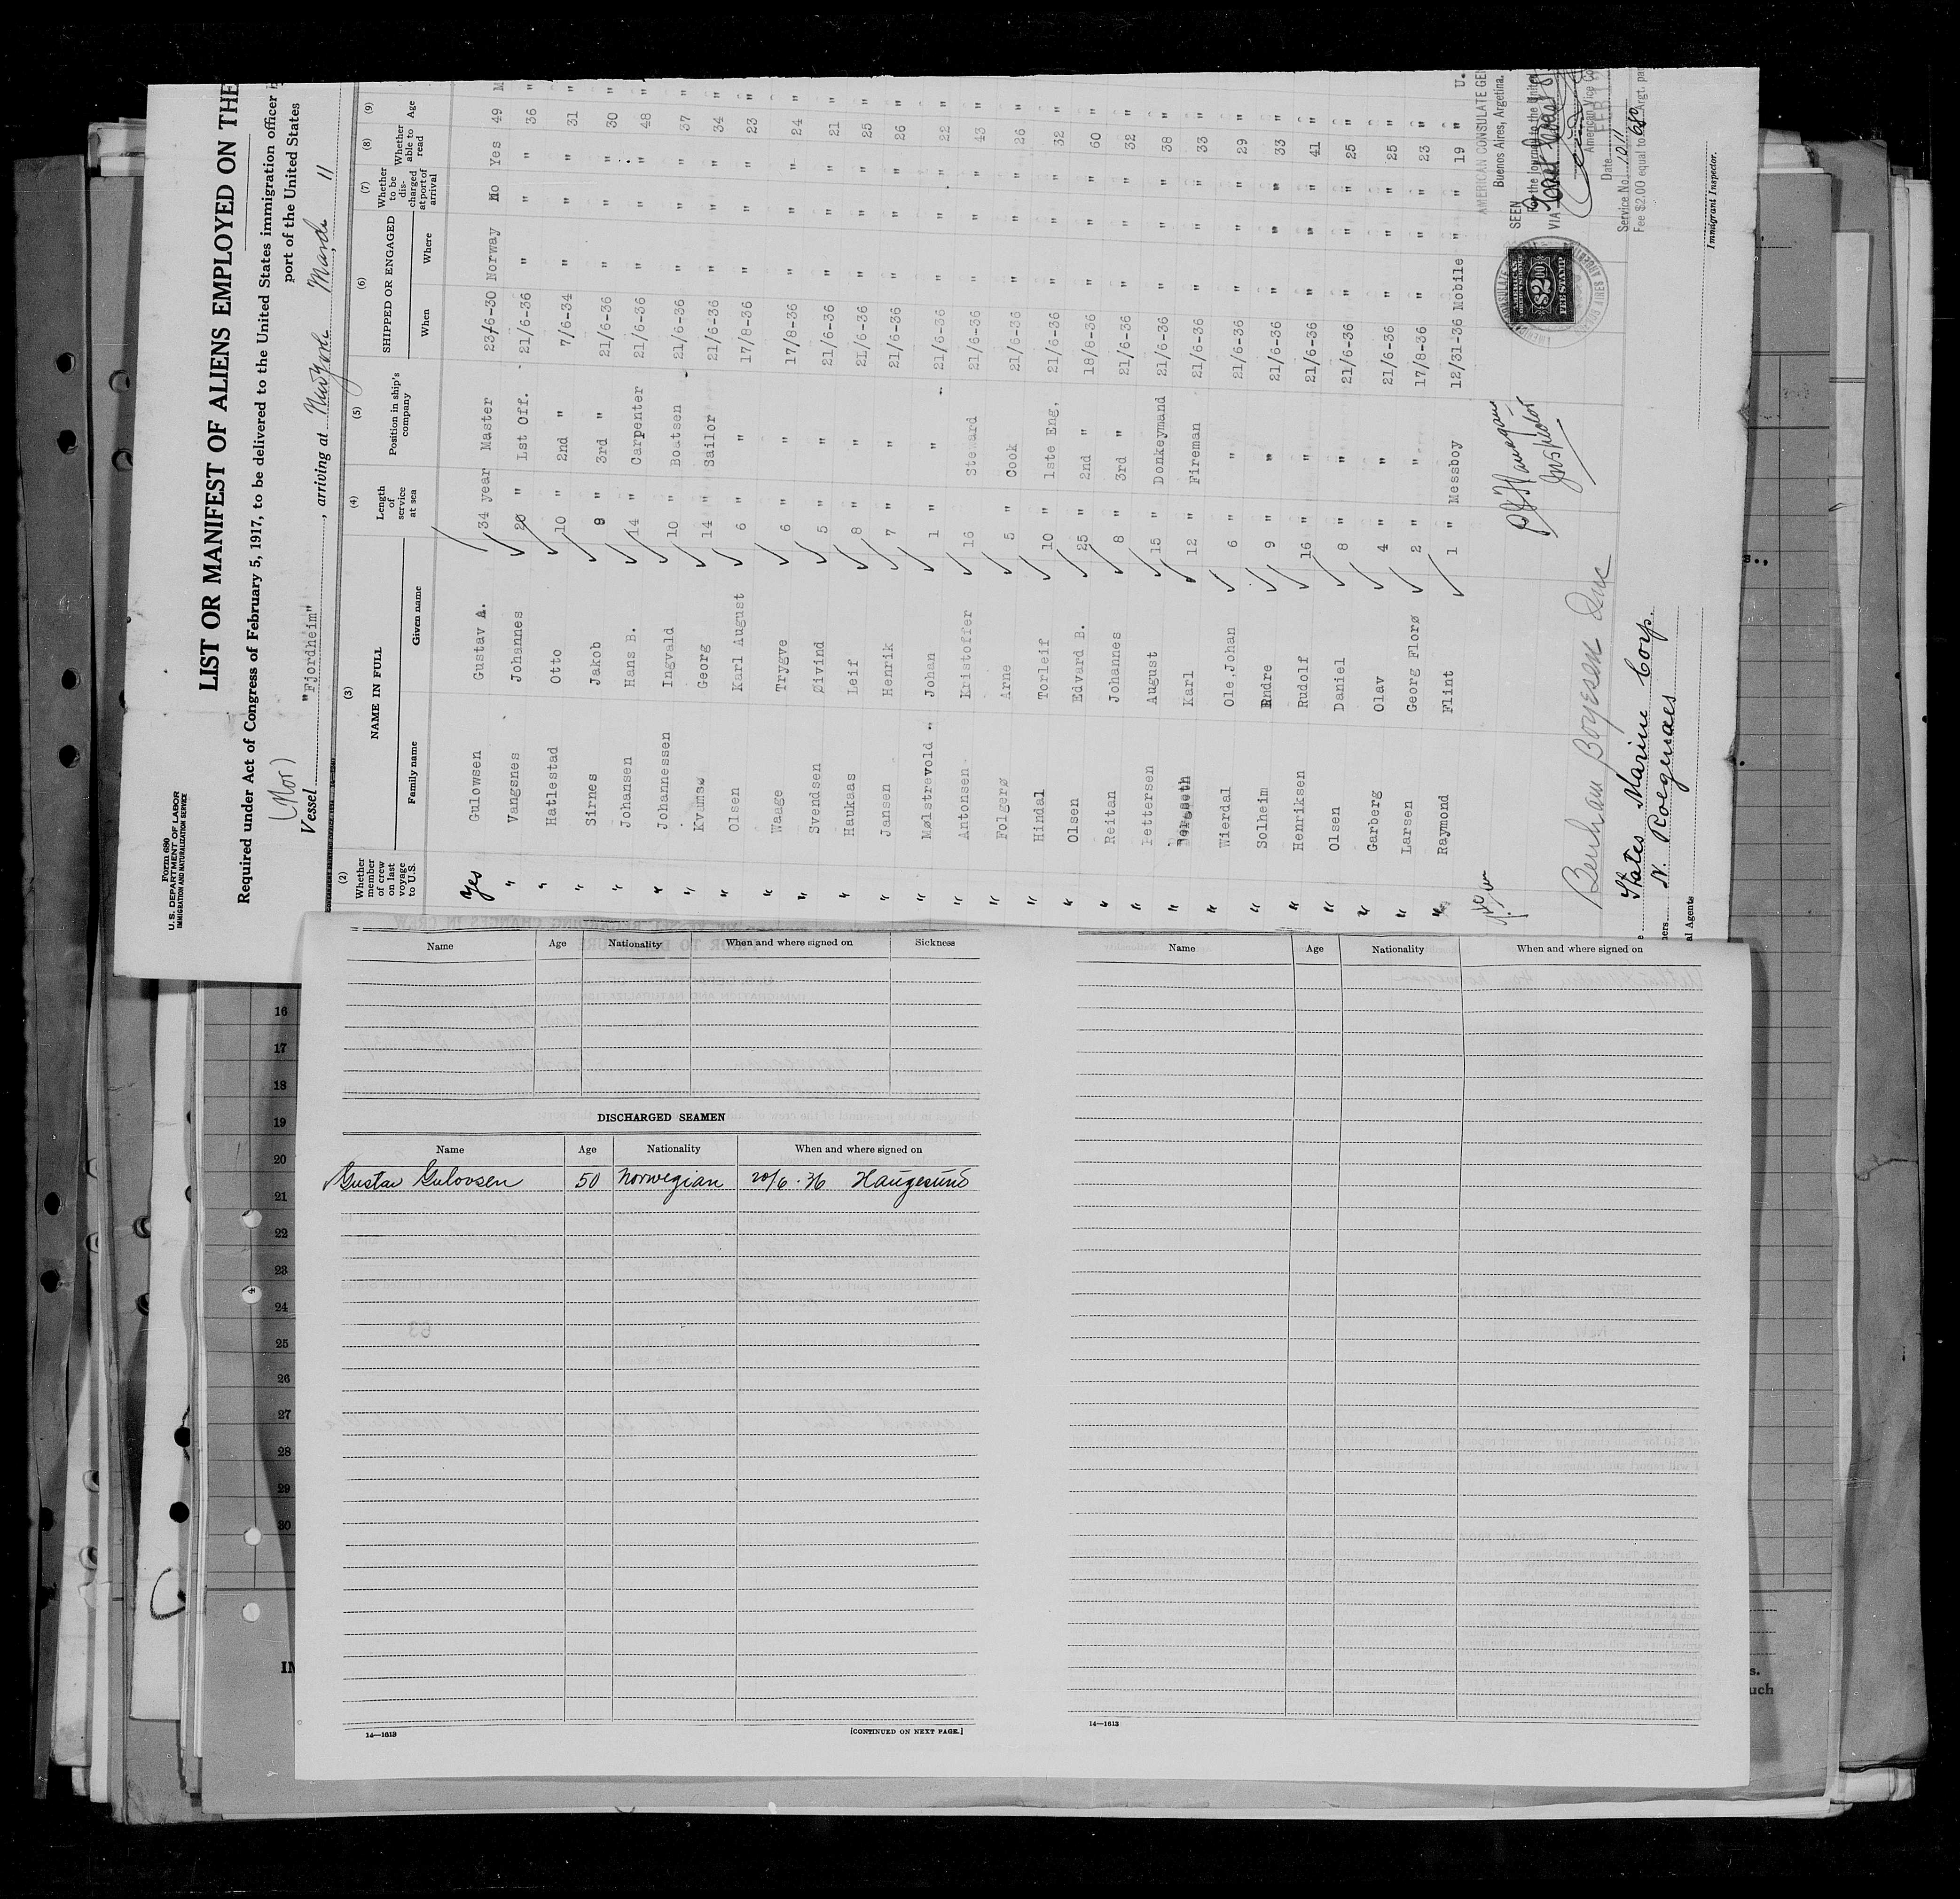 Form 680
U. S. DEPARTMENT OF LABOR
IMMIGRATION AND NATURALIZATION SERVICE
LIST OR MANIFEST OF ALIENS EMPLOYED ON THE
Required under Act of Congress of February 5, 1917, to be delivered to the United States immigration officer
port of the United States
(Nor)
Vessel "Fjordheim", arriving at Newyork March 11
(2) (3) (4) (5) (6) (7) (8) (9)
Whether member of crew on last voyage to U.S. NAME IN FULL Length of service at sea Position in ship's company SHIPPED OR ENGAGED Whether to be discharged at port of arrival Whether able to read Age
Family name Given name When Where
Yes Gulowsen Gustav A. 34 year Master 23/6-30 Norway No Yes 49 M
" Vangsnes Johannes 20 " 1st Off. 21/6-36 " " " 36 "
" Hatlestad Otto 10 " 2nd " 7/6-34 " " " 31 "
" Sirnes Jakob 9 " 3rd " 21/6-36 " " " 30 "
" Johansen Hans B. 14 " Carpenter 21/6-36 " " " 48 "
" Johannessen Ingvald 10 " Boatsen 21/6-36 " " " 37 "
" Kvamsø Georg 14 " Sailor 21/6-36 " " " 34 "
" Olsen Karl August 6 " " 17/8-36 " " " 23 "
" Waage Trygve 6 " " 17/8-36 " " " 24 "
" Svendsen Øivind 5 " " 21/6-36 " " " 21 "
" Haukaas Leif 8 " " 21/6-36 " " " 25 "
" Jansen Henrik 7 " " 21/6-36 " " " 26 "
" Mølstrevold Johan 1 " " 21/6-36 " " " 22 "
" Antonsen Kristoffer 16 " Steward 21/6-36 " " " 43 "
" Folgerø Arne 5 " Cook 21/6-36 " " " 26 "
" Hindal Torleif 10 " 1ste Eng, 21/6-36 " " " 32 "
" Olsen Edvard B. 25 " 2nd " 18/8-36 " " " 60 "
" Reitan Johannes 8 " 3rd " 21/6-36 " " " 32 "
" Pettersen August 15 " Donkeymand 21/6-36 " " " 38 "
" Karl 12 " Fireman 21/6-36 " " " 33 "
" Wierdal Ole,Johan 6 " " 21/6-36 " " " 29 "
" Solheim Endre 9 " " 21/6-36 " " " 33 "
" Henriksen Rudolf 16 " " 21/6-36 " " " 41 "
" Olsen Daniel 8 " " 21/6-36 " " " 25 "
" Garberg Olav 4 " " 21/6-36 " " " 25 "
" Larsen Georg Florø 2 " " 17/8-36 " " " 23 "
" Raymond Flint 1 " Messboy 12/31-36 Mobile " " 19 U.
AMERICAN CONSULATE GEN
Buenos Aires, Argetina.
SEEN
For the journey to the United
VIA
American Vice Co
Date
Service No. 1011
Fee $2.00 equal to Argt. pa
AMERICAN
$2.00
FEE STAMP
Inspector
Benham Boyesen Inc
States Marine Corp.
N. Roegenaes
al Agents
Immigrant Inspector.
Name Age Nationality When and where signed on Sickness
Name Age Nationality When and where signed on
DISCHARGED SEAMEN
Name Age Nationality When and where signed on
Gustav Gulovsen 50 Norwegian 20/6-36 Haugesund
14—1613 [CONTINUED ON NEXT PAGE.]
14—1613
16
17
18
19
20
21
22
23
24
25
26
27
28
29
30